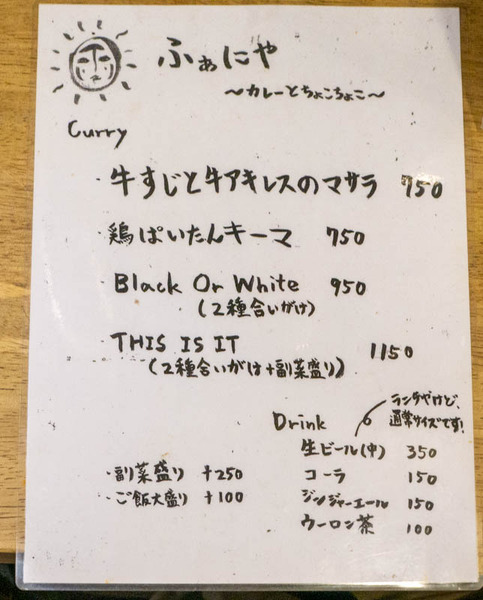 ふぁにや
～カレーとちょこちょこ～
Curry
・牛すじと牛アキレスのマサラ 750
・鶏ぱいたんキーマ 750
・Black Or White 950
(2種合いがけ)
・THIS IS IT 1150
(2種合いがけ+副菜盛り)
Drink
ランチやけど、
通常サイズです!
生ビール(中) 350
・副菜盛り +250
コーラ 150
・ご飯大盛り +100
ジンジャーエール 150
ウーロン茶 100